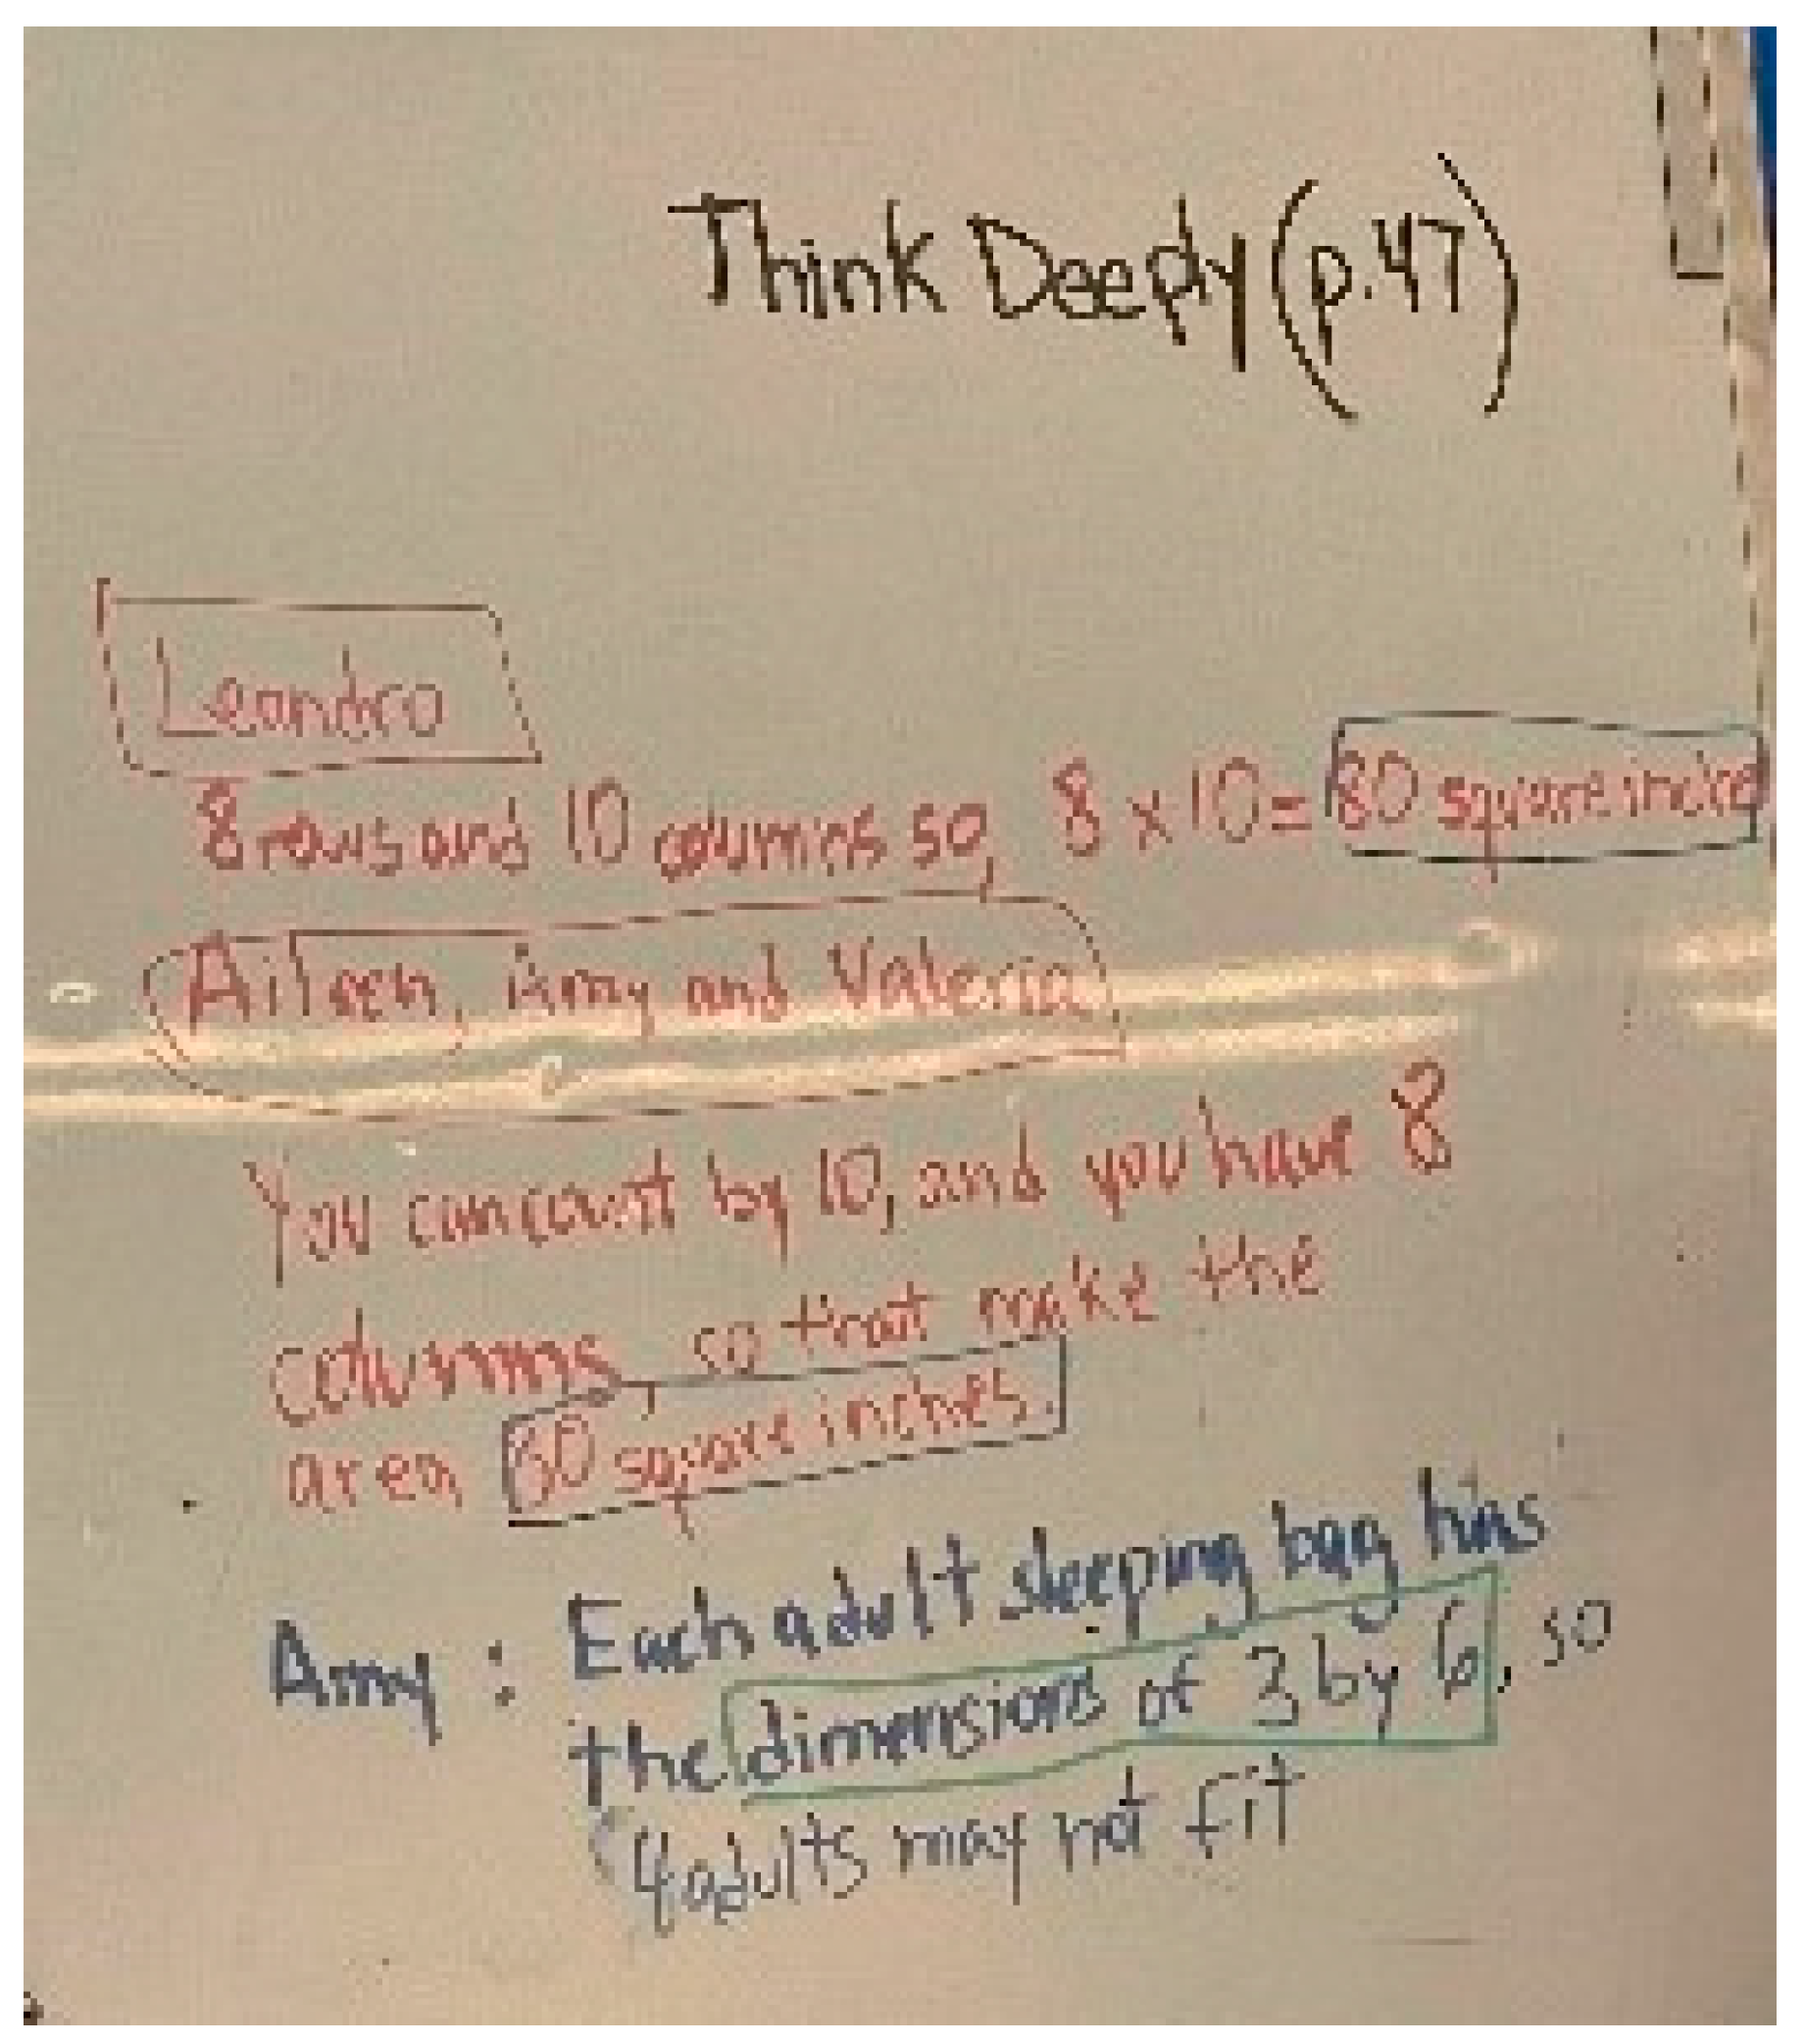 Think Deeply (p.47)
Leandro
8 rows and 10 columns so, 8 x 10 = 80 square inche
Aileen, Amy and Valeria
You can count by 10, and you have 8
columns, so that make the
area 80 square inches.
Amy: Each adult sleeping bag has
the dimensions of 3 by 6, so
4 adults may not fit